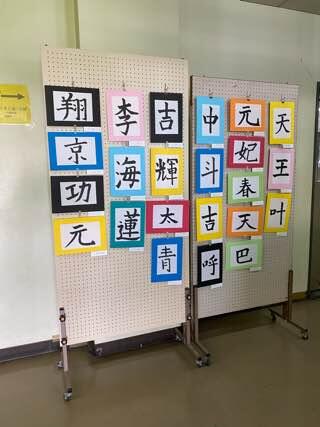 翔
京
功
元
李
海
蓮
吉
輝
太
青
中
斗
吉
呼
元
妃
春
天
巴
天
王
叶